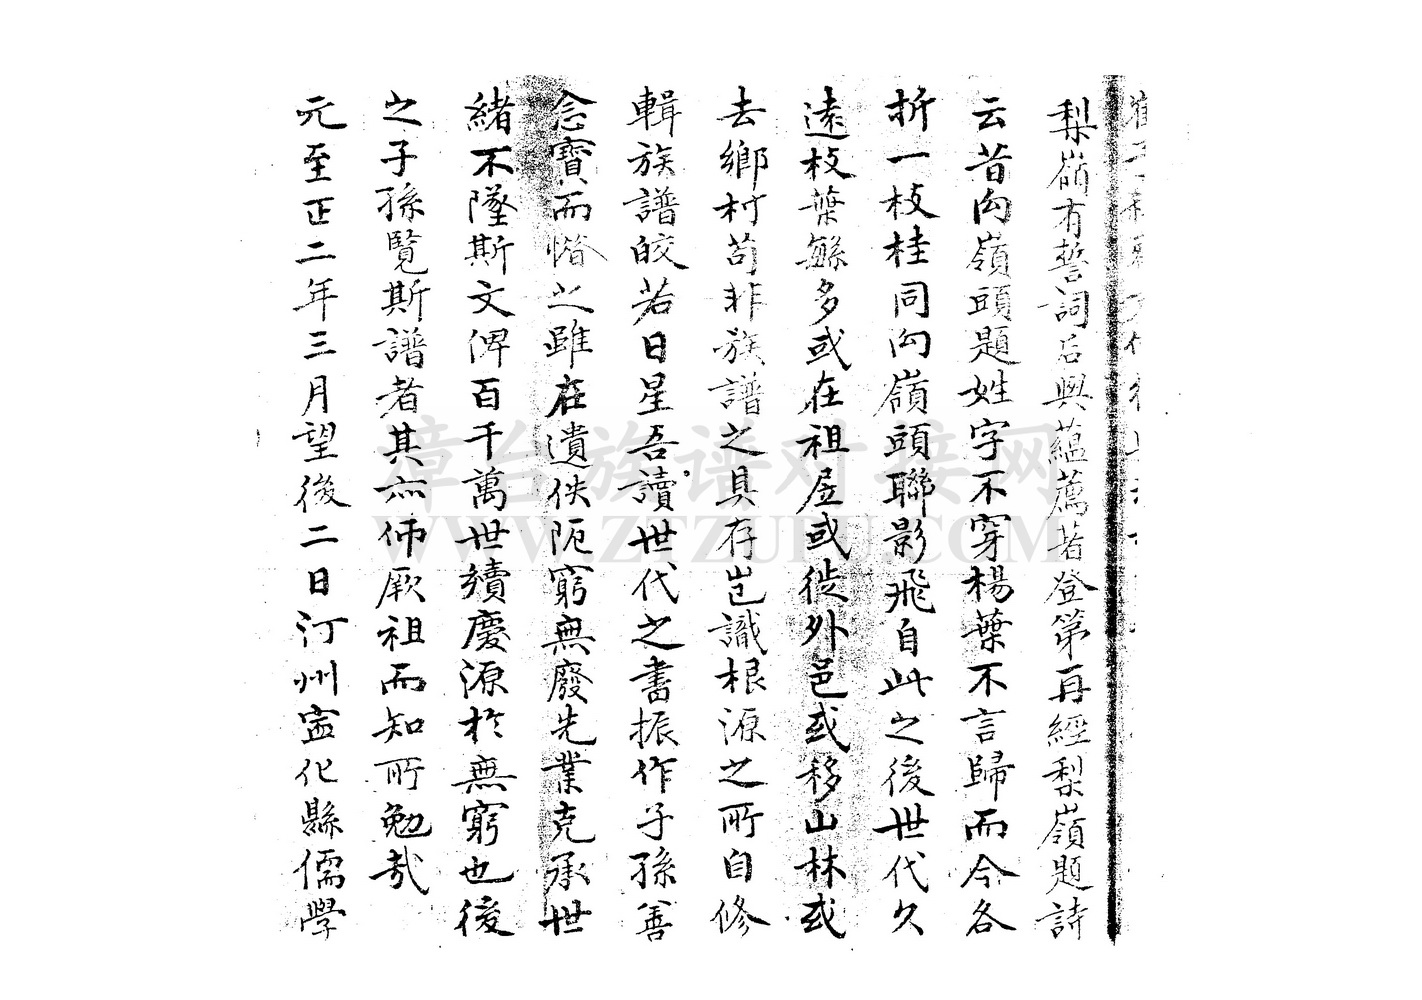 梨嶺有誓詞后與蘊薦若登第再經梨嶺題詩
云昔向嶺頭題姓字不穿楊葉不言歸而今各
折一枝桂同向嶺頭聯影飛自此之後世代久
遠枝葉繇多或在祖居或徙外邑或移山林或
去鄉村苟非族譜之具存豈識根源之所自修
輯族譜皎若日星吾讀世代之書振作子孫善
念寶而惜之雖在遺佚阨窮無廢先業克承世
緒不墜斯文俾百千萬世續慶源於無窮也後
之子孫覽斯譜者其亦師厥祖而知所勉哉
元至正二年三月望後二日汀州寍化縣儒學
章台族谱对接网
WWW.ZTZUPU.COM